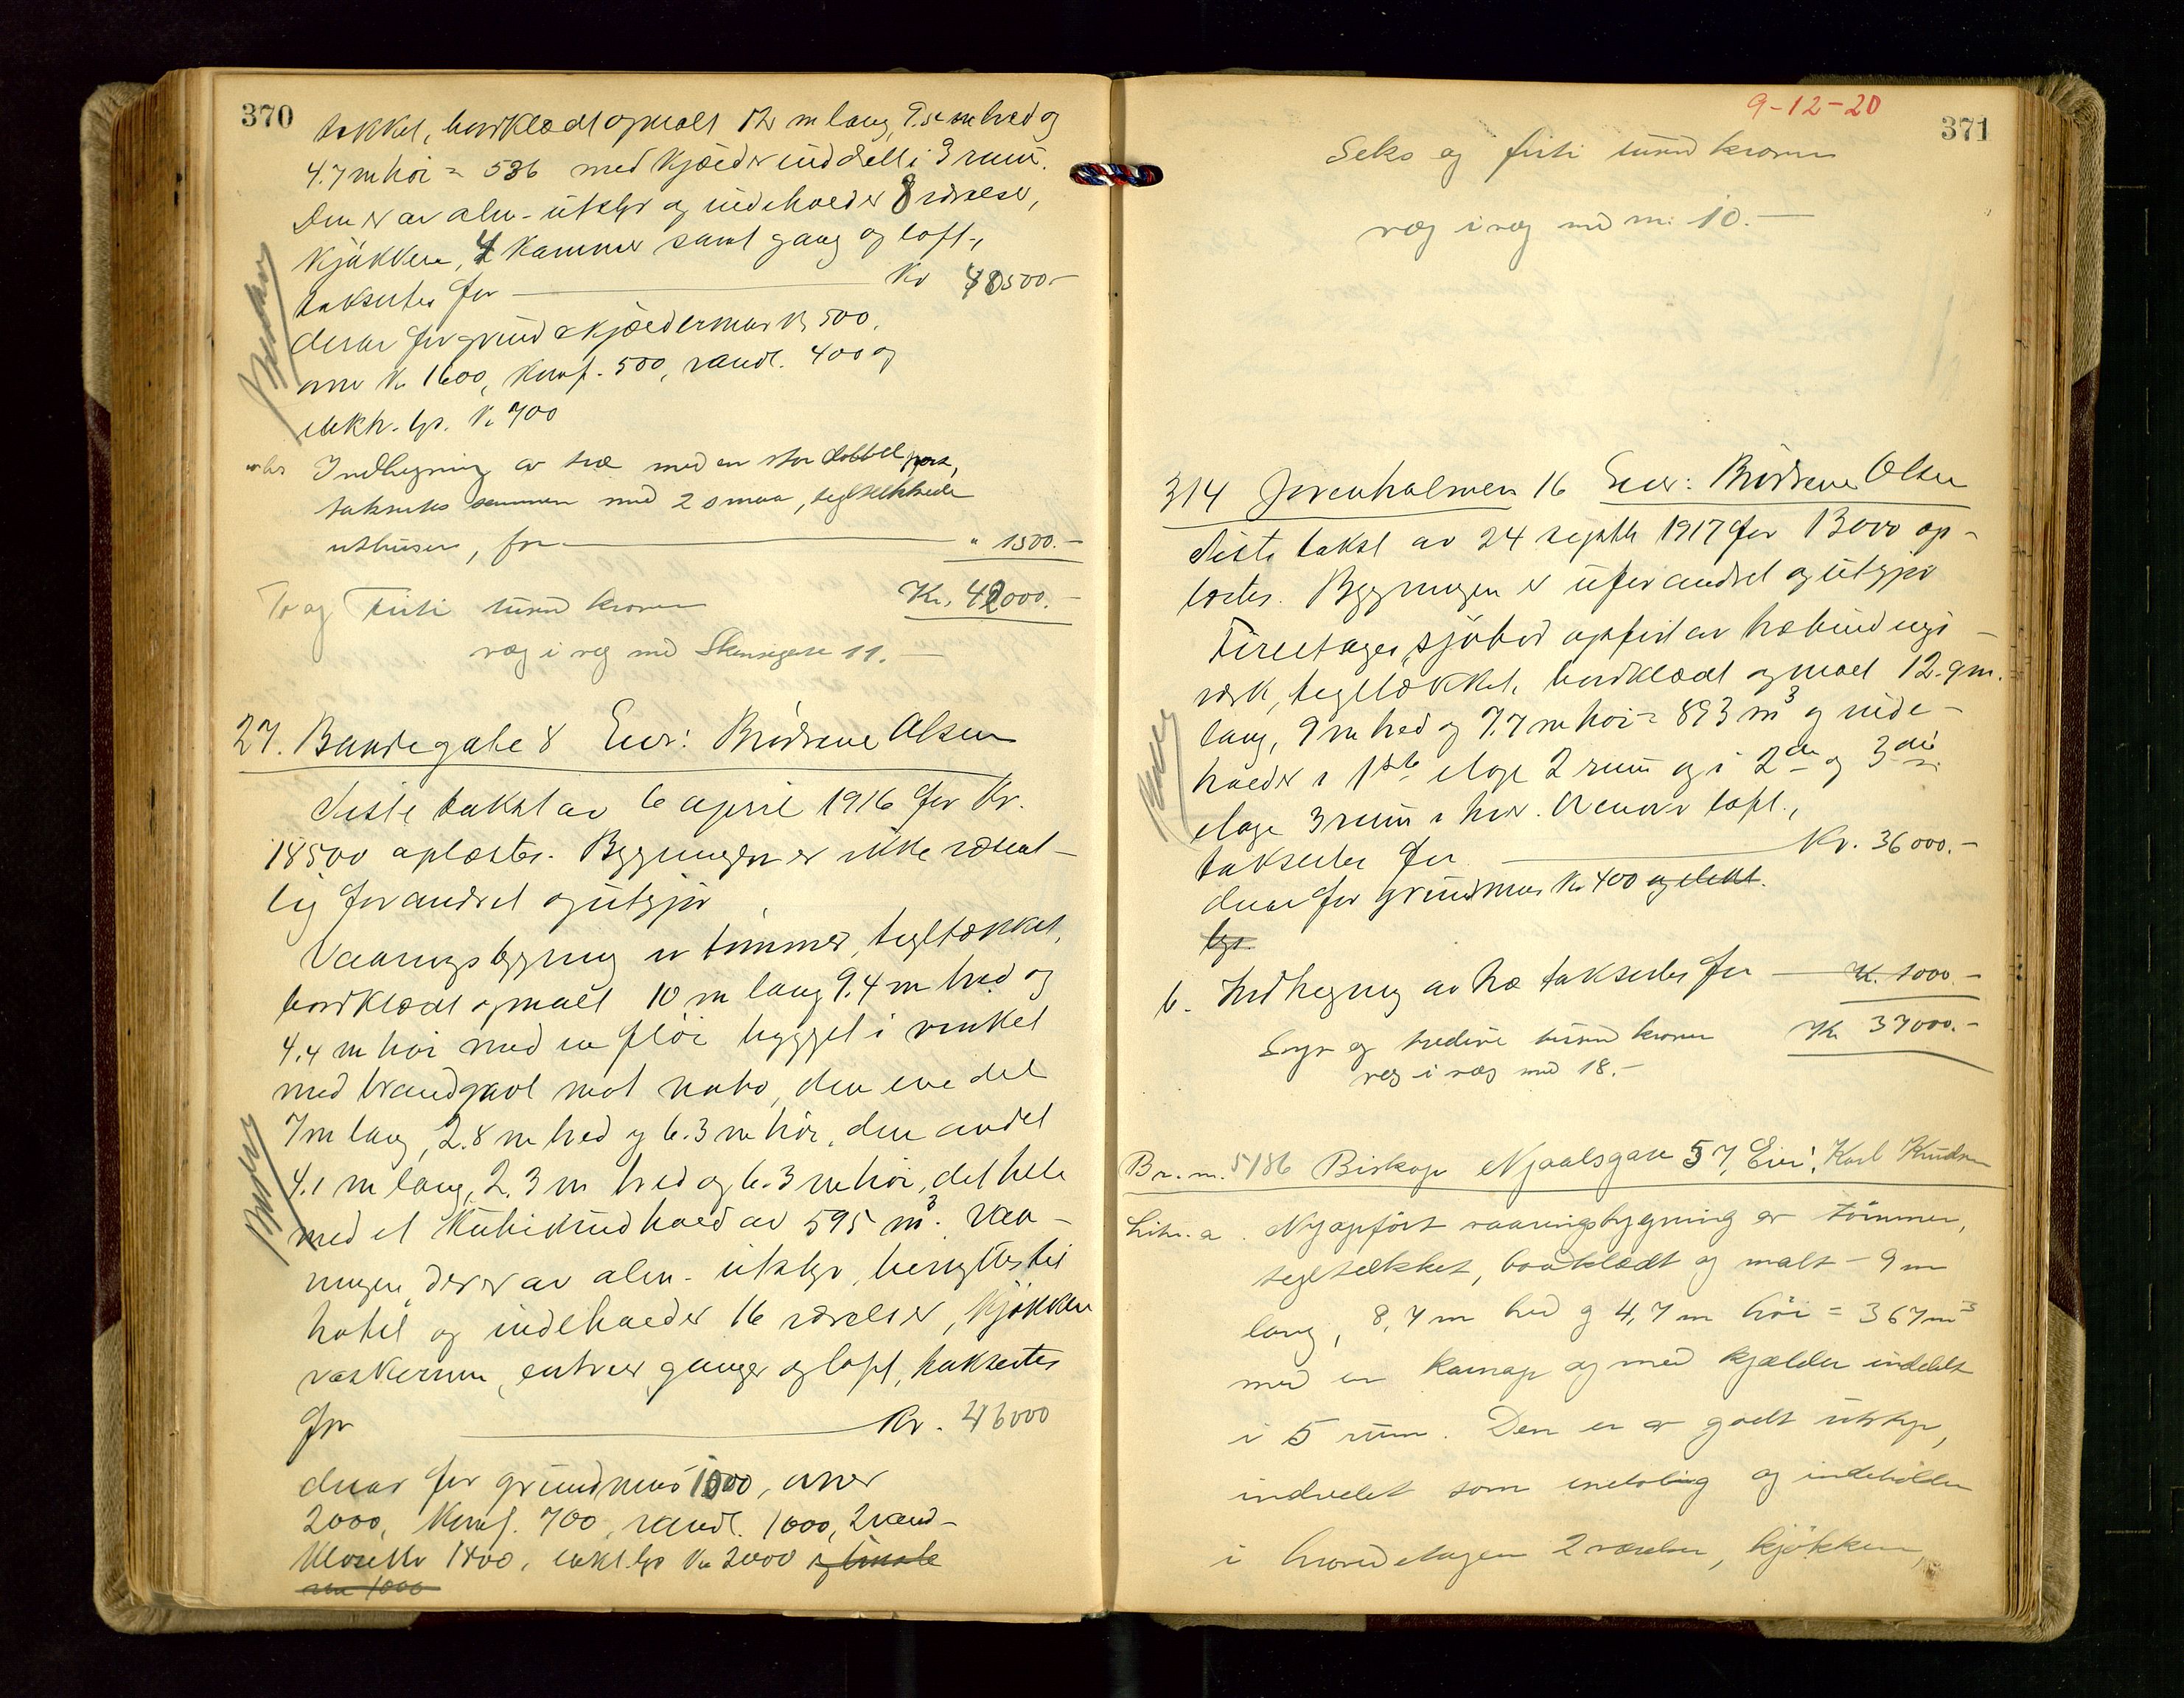 370
tækket, bordklædt og malt 12 m lang, 9.5 m bred og
4.7 m høi = 536 med kjælder inddelt i 3 rum.
Den er av alm. utstyr og indeholder 8 værelser,
kjøkken, 4 kammer samt gang og loft,
takseres for — Kr 40500.-
derav for grund & kjældermur kr 500,
ovne kr 1600, komf. 500, vandl. 400 og
elektr. lys. kr 700
Indhegning av træ med en stor dobbel port,
takseres sammen med 2 smaa, tegltækkede
uthuser, for — " 1500.-
To og Firti tusend kroner Kr. 42000.-
væg i væg med 11.-
27. Bandegate 8 Eier: Brødrene Olsen
Siste takst av 6 april 1916 for Kr.
18500 oplæstes. Bygningen er ikke væsent-
lig forandret og utgjør
Vaaningsbygning av tømmer, tegltækket,
bordklædt og malt 10 m lang 9.4 m bred og
4.4 m høi med en fløi bygget i vinkel
med brandgavl mot nabo, den ene del
7 m lang, 2.8 m bred og 6.3 m høi, den andel
4.1 m lang, 2.3 m bred og 6.3 m høi, det hele
med et kubikindhold av 595 m³. Vaa-
ningen, der er av alm. utstyr, benyttes til
hotel og indeholder 16 værelser, kjøkken
vaskerum, entreer, ganger og loft, takseres
for — Kr. 46000
derav for grundmur 1000, ovner
2000, komf. 700, vandl. 1000, 2 vand-
klosetter 1800, elekt. lys kr 2000
1000
9-12-20
371
Seks og firti tusend kroner
væg i væg med nr: 10.-
314 Jorenholmen 16 Eier: Brødrene Olsen
Siste takst av 24 septbr 1917 for 13000 op-
læstes. Bygningen er uforandret og utgjør
Treetages sjøbod opført av træbindings-
verk, tegltækket, bordklædt og malt 12.9 m.
lang, 9 m bred og 7.7 m høi = 893 m³ og inde-
holder i 1ste etage 2 rum og i 2den og 3die
etage 3 rum i hver. Ovenover loft,
takseres for — Kr. 36000.-
derav for grundmur kr 400 og elekt.
lys.
b. Indhegning av træ takseres for — Kr. 1000.-
Syv og tredive tusend kroner Kr 37000.-
væg i væg med 18.-
Br. nr. 5186 Biskop Njaalsgate 57, Eier: Karl Knudsen
Litr. a. Nyopført vaaningsbygning av tømmer,
tegltækket, bordklædt og malt - 9 m
lang, 8,7 m bred og 4,7 m høi = 367 m³
med en karnap og med kjælder inddelt
i 5 rum. Den er av godt utstyr,
indredet som enebolig og indeholder
i hovedetagen 2 værelser, kjøkken,